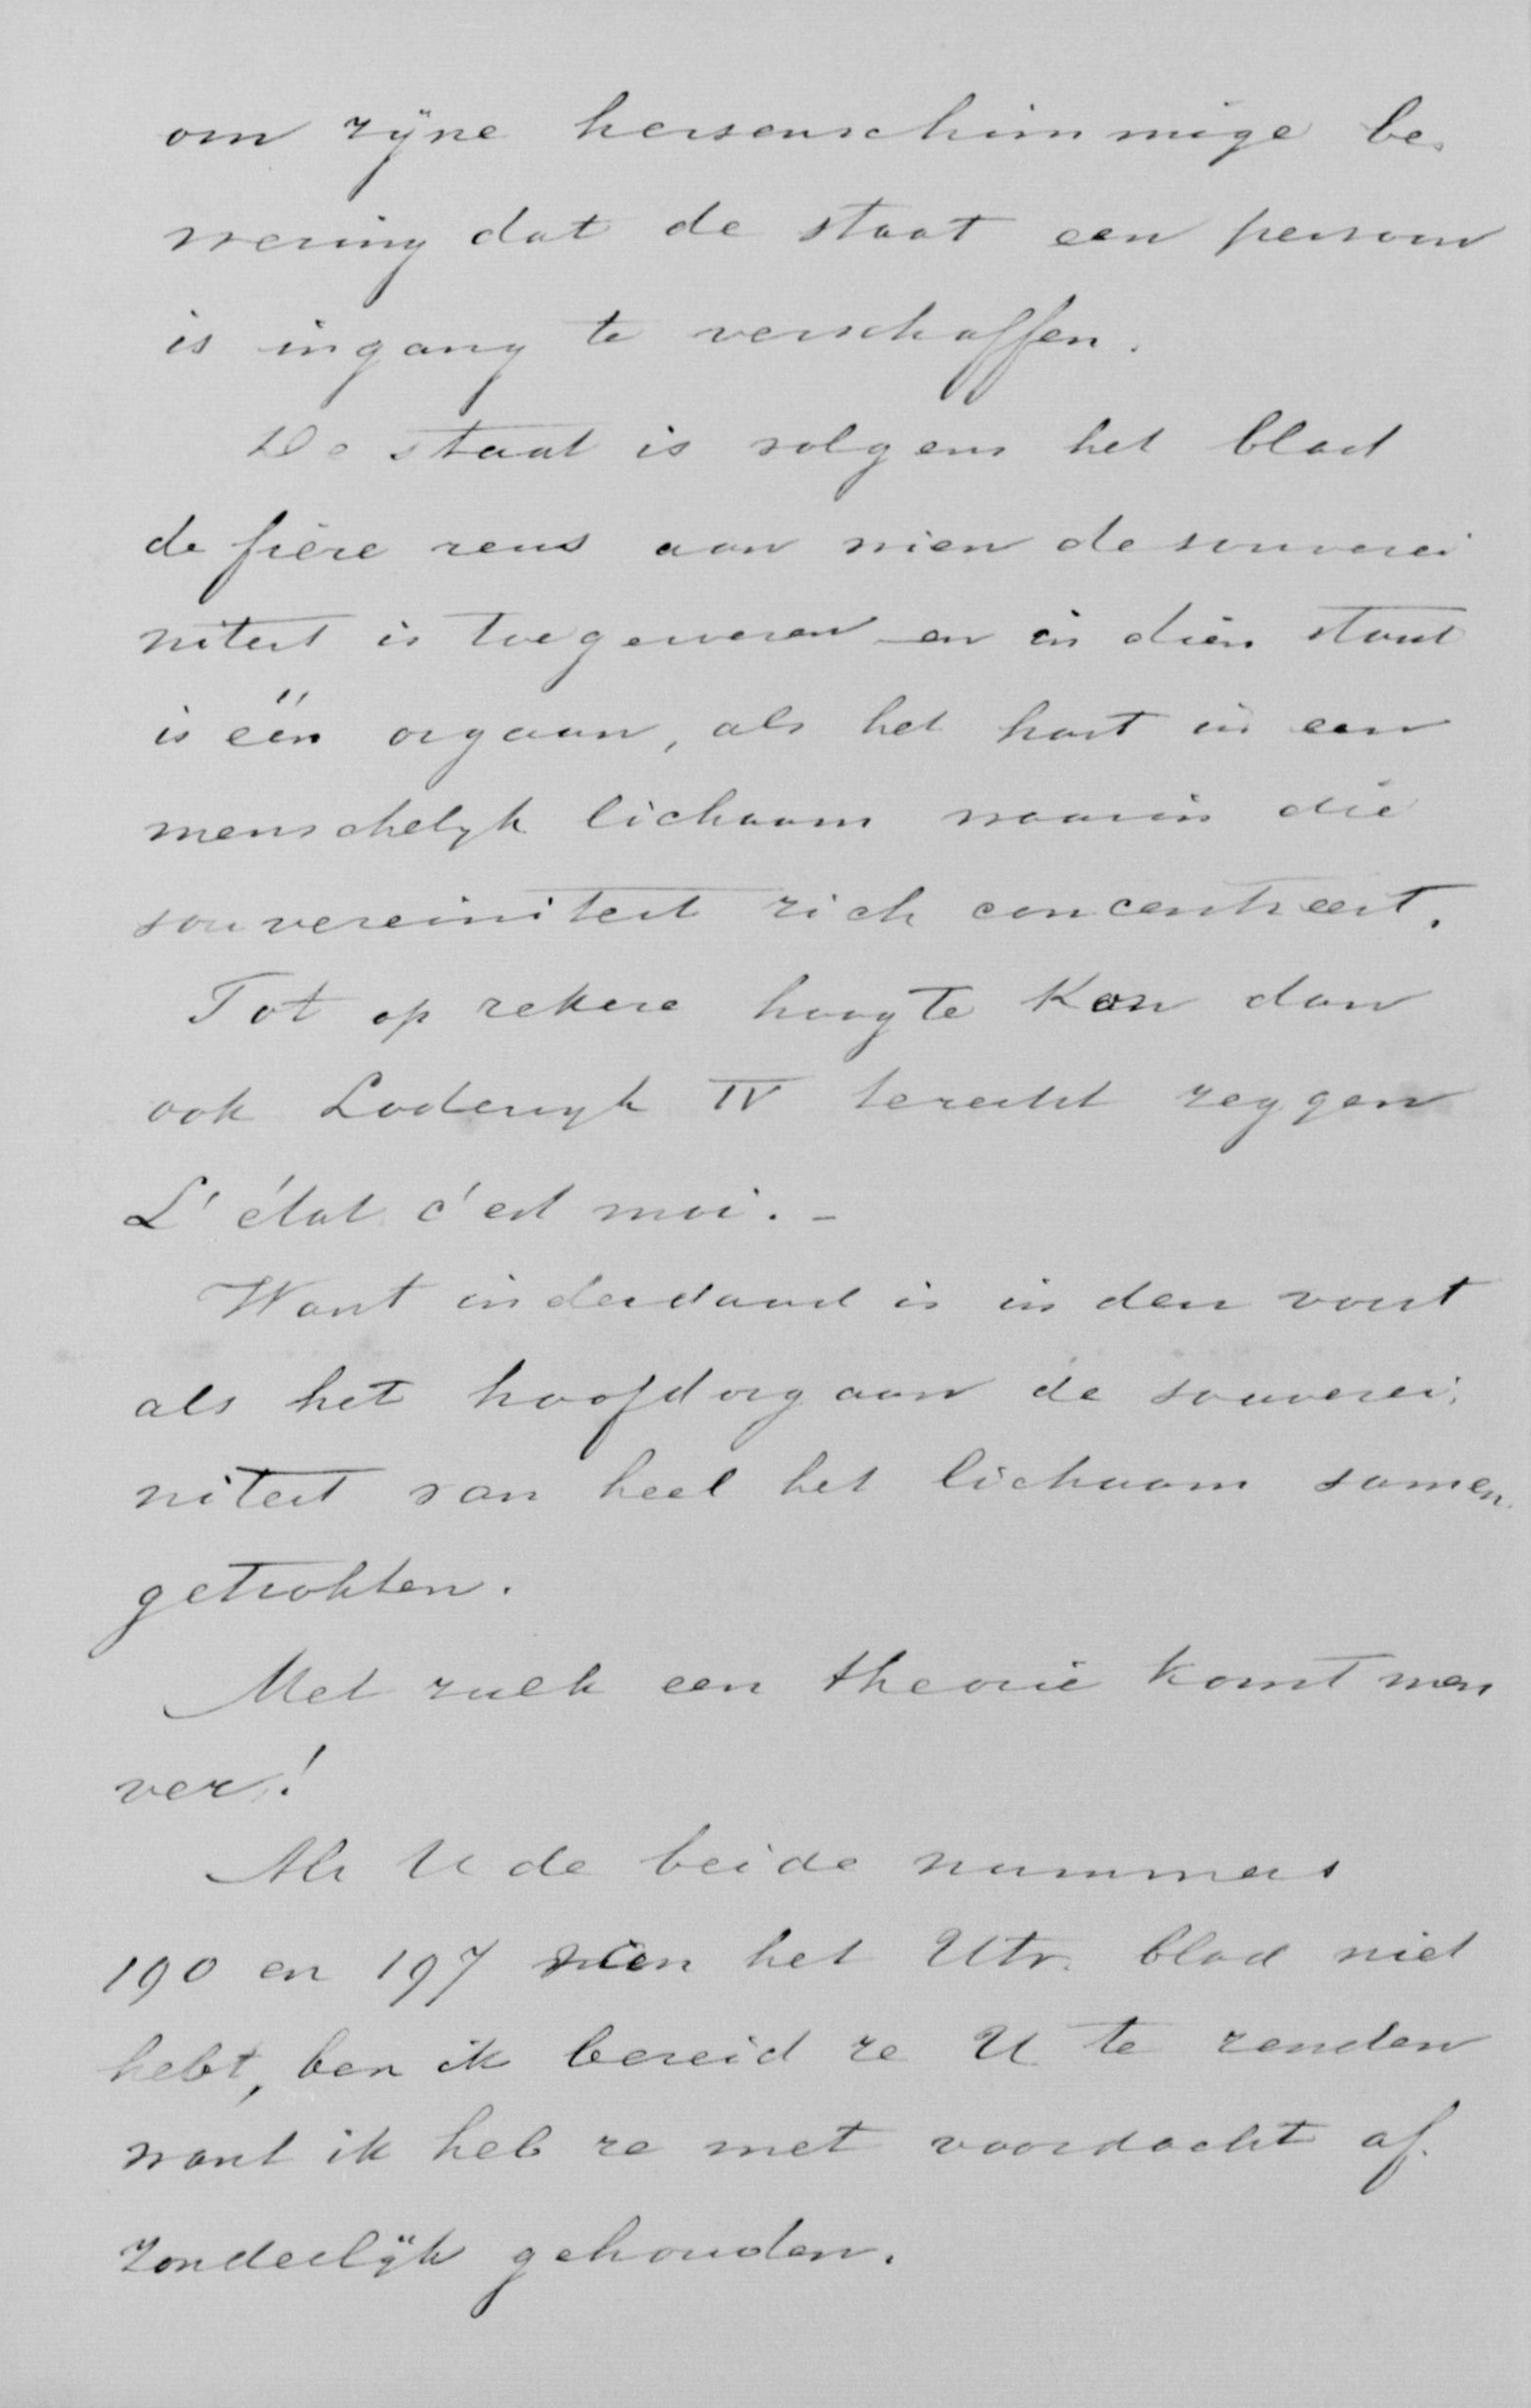 om zijne hersenschimmige be-
wering dat de staat een persoon
is ingang te verschaffen.
De staat is volgens het blad
de fiere reus aan wien de souverei
niteit is toegewezen en in dien staat
is één orgaan, als het hart in een
menschelijk lichaam waarin die
souvereiniteit zich concentreert.
Tot op zekere hoogte kon dan
ook Lodewijk IV terecht zeggen
L'état c'est moi. -
Want inderdaad is in den vorst
als het hoofdorgaan de souverei-
niteit van heel het lichaam samen-
getrokken.
Met zulk een theorie komt men
ver!
Als U de beide nummers
190 en 197 van het Utr. blad niet
hebt, ben ik bereid ze U te zenden
want ik heb ze met voordacht af-
zonderlijk gehouden.